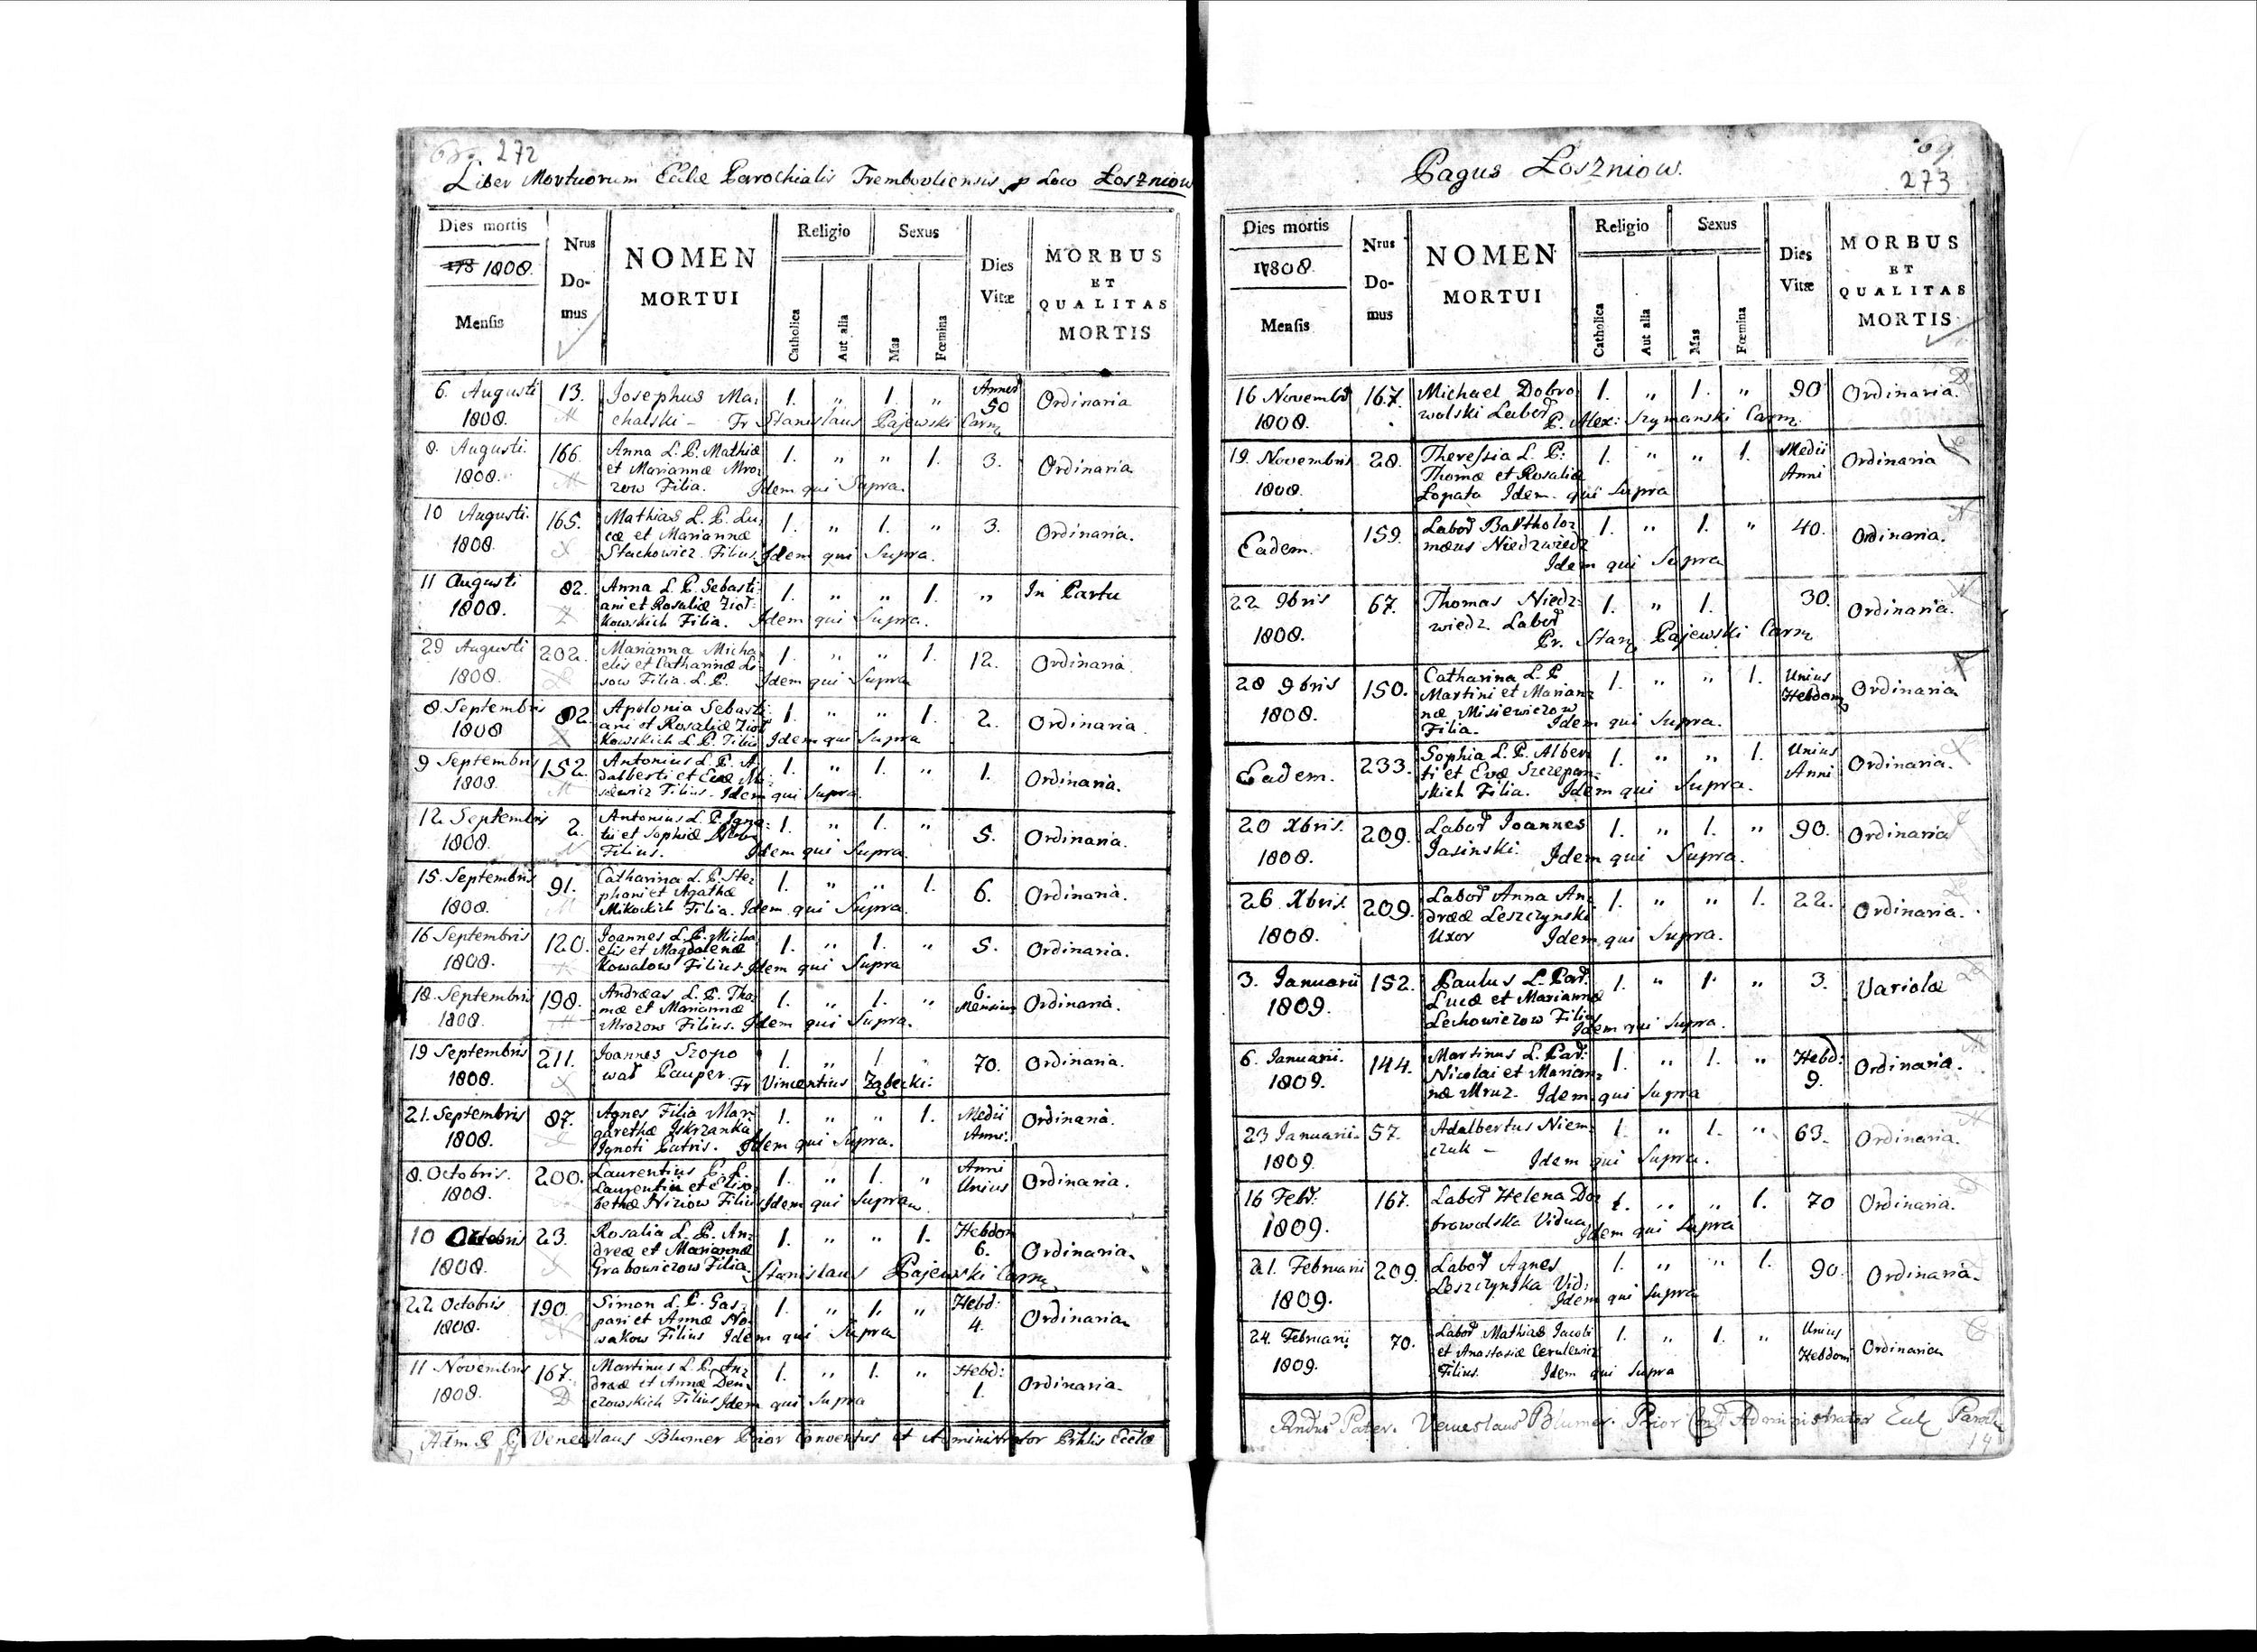 272
Liber Mortuorum Eccłae Parochialis Trembovliensis p Loco Łoszniow
Dies mortis
1808.
Mensis
Nrus
Do-
mus
NOMEN
MORTUI
Religio
Catholica
Aut alia
Sexus
Mas
Fœmina
Dies
Vitæ
MORBUS
ET
QUALITAS
MORTIS
6. Augusti 13. Josephus Ma: 1. " 1. " Annos Ordinaria
1808. chalski - Fr Stanislaus Pajewski Carm 50
8. Augusti. 166. Anna L. P. Mathiæ 1. " " 1. 3. Ordinaria
1808. et Mariannæ Mro:
zow Filia. Idem qui Supra.
10 Augusti. 165. Mathias L. P. Lu: 1. " 1. " 3. Ordinaria.
1808. cæ et Mariannæ
Stachowicz Filius. Idem qui Supra.
11 Augusti 82. Anna L. P. Sebasti: 1. " " 1. " In Partu
1808. ani et Rosaliæ Zioł:
kowskich Filia. Idem qui Supra.
29 Augusti 202. Marianna Micha 1. " " 1. 12. Ordinaria
1808. elis et Catharinæ Li:
sow Filia. L. P. Idem qui Supra
8. Septembris 82. Apolonia Sebasti: 1. " " 1. 2. Ordinaria.
1808 ani et Rosaliæ Zioł
kowskich L. P. Filia Idem qui Supra
9 Septembris 152. Antonius L. P. A: 1. " 1. " 1. Ordinaria.
1808. dalberti et Evæ Mi:
siewicz Filius. Idem qui Supra.
12. Septembris 2. Antonius L. P. Igna: 1. " 1. " 5. Ordinaria.
1808. tii et Sophiæ
Filius. Idem qui Supra.
15. Septembris 91. Catharina L. P. Ste: 1. " " 1. 6. Ordinaria.
1808. phani et Agathæ
Mikockich Filia. Idem qui Supra.
16 Septembris 120. Joannes L. P. Micha 1. " 1. " 5. Ordinaria.
1808. elis et Magdalenæ
Kowalow Filius. Idem qui Supra
18. Septembris 198. Andreas L. P. Tho: 1. " 1. " 6. Ordinaria.
1808. mæ et Mariannæ Mensium
Mrozow Filius. Idem qui Supra.
19 Septembris 211. Joannes Szopo 1. " 1. " 70. Ordinaria.
1808. wał Pauper. Fr Vincentius Ząbecki.
21. Septembris 87. Agnes Filia Mar: 1. " " 1. Medii Ordinaria.
1808. garethæ Iskrzanka Anni.
Ignoti Patris. Idem qui Supra.
8. Octobris. 200. Laurentius P. L. 1. " 1. " Anni Ordinaria.
1808. Laurentii et Elisa: Unius
bethæ Niziow Filius Idem qui Supra
10 Octobris 23. Rosalia L. P. An: 1. " " 1. Hebdom Ordinaria.
1808. dreæ et Mariannæ 6.
Grabowiczow Filia. Stanislaus Pajewski Carm
22 Octobris 190. Simon L. P. Gas: 1. " 1. " Hebd: Ordinaria
1808. pari et Annæ No: 4.
wakow Filius Idem qui Supra
11 Novembris 167. Martinus L. P. An: 1. " 1. " Hebd: Ordinaria.
1808. dreæ et Annæ Den: 1.
czowskich Filius Idem qui Supra
Adm R P Venceslaus Blumer Prior Conventus et Administrator Prhlis Eccłæ
69.
Pagus Łoszniow. 273
Dies mortis
1808.
Mensis
Nrus
Do-
mus
NOMEN
MORTUI
Religio
Catholica
Aut alia
Sexus
Mas
Fœmina
Dies
Vitæ
MORBUS
ET
QUALITAS
MORTIS
16 Novembr 167. Michael Dobro 1. " 1. " 90 Ordinaria.
1808. wolski Labor P. Alex: Szymanski Carm.
19. Novembris 28. Theressia L. P. 1. " " 1. Medii Ordinaria
1808. Thomæ et Rosaliæ Anni
Łopata Idem. qui Supra
Eadem. 159. Labor Bartholo: 1. " 1. " 40. Ordinaria.
mæus Niedzwiedz
Idem qui Supra
22 9bris 67. Thomas Niedz: 1. " 1. 30. Ordinaria.
1808. wiedz Labor
Pr. Stan Pajewski Carm
28 9bris 150. Catharina L. P. 1. " " 1. Unius Ordinaria
1808. Martini et Marian: Hebdom
næ Misiewiczow
Filia. Idem qui Supra.
Eadem. 233. Sophia L. P. Alber: 1. " " 1. Unius Ordinaria.
ti et Evæ Szczepan: Anni
skich Filia. Idem qui Supra.
20 Xbris. 209. Labor Joannes 1. " 1. " 90. Ordinaria
1808. Jasinski. Idem qui Supra.
26 Xbris. 209. Labor Anna An: 1. " " 1. 22. Ordinaria.
1808. dreæ Leszczynski
Uxor Idem qui Supra.
3. Januarii 152. Paulus L. Par. 1. " 1. " 3. Variolæ
1809. Lucæ et Mariannæ
Lechowiczow Filius
Idem qui Supra.
6. Januarii. 144. Martinus L. Par: 1. " 1. " Hebd: Ordinaria.
1809. Nicolai et Marian: 9.
næ Mruz. Idem qui Supra
23 Januarii. 57. Adalbertus Niem: 1. " 1. " 63. Ordinaria.
1809. czuk - Idem qui Supra.
16 Febr. 167. Labor Helena Do: 1. " " 1. 70 Ordinaria.
1809. browolska Vidua Idem qui Supra
21. Februarii 209. Labor Agnes 1. " " 1. 90. Ordinaria.
1809. Leszczynska Vid: Idem qui Supra
24. Februarii 70. Labor Mathias Jacobi 1. " 1. " Unius Ordinaria
1809. et Anastasiæ Cerulewicz Hebdom
Filius. Idem qui Supra
Rndus Pater. Venceslaus Blumer. Prior Administrator
14